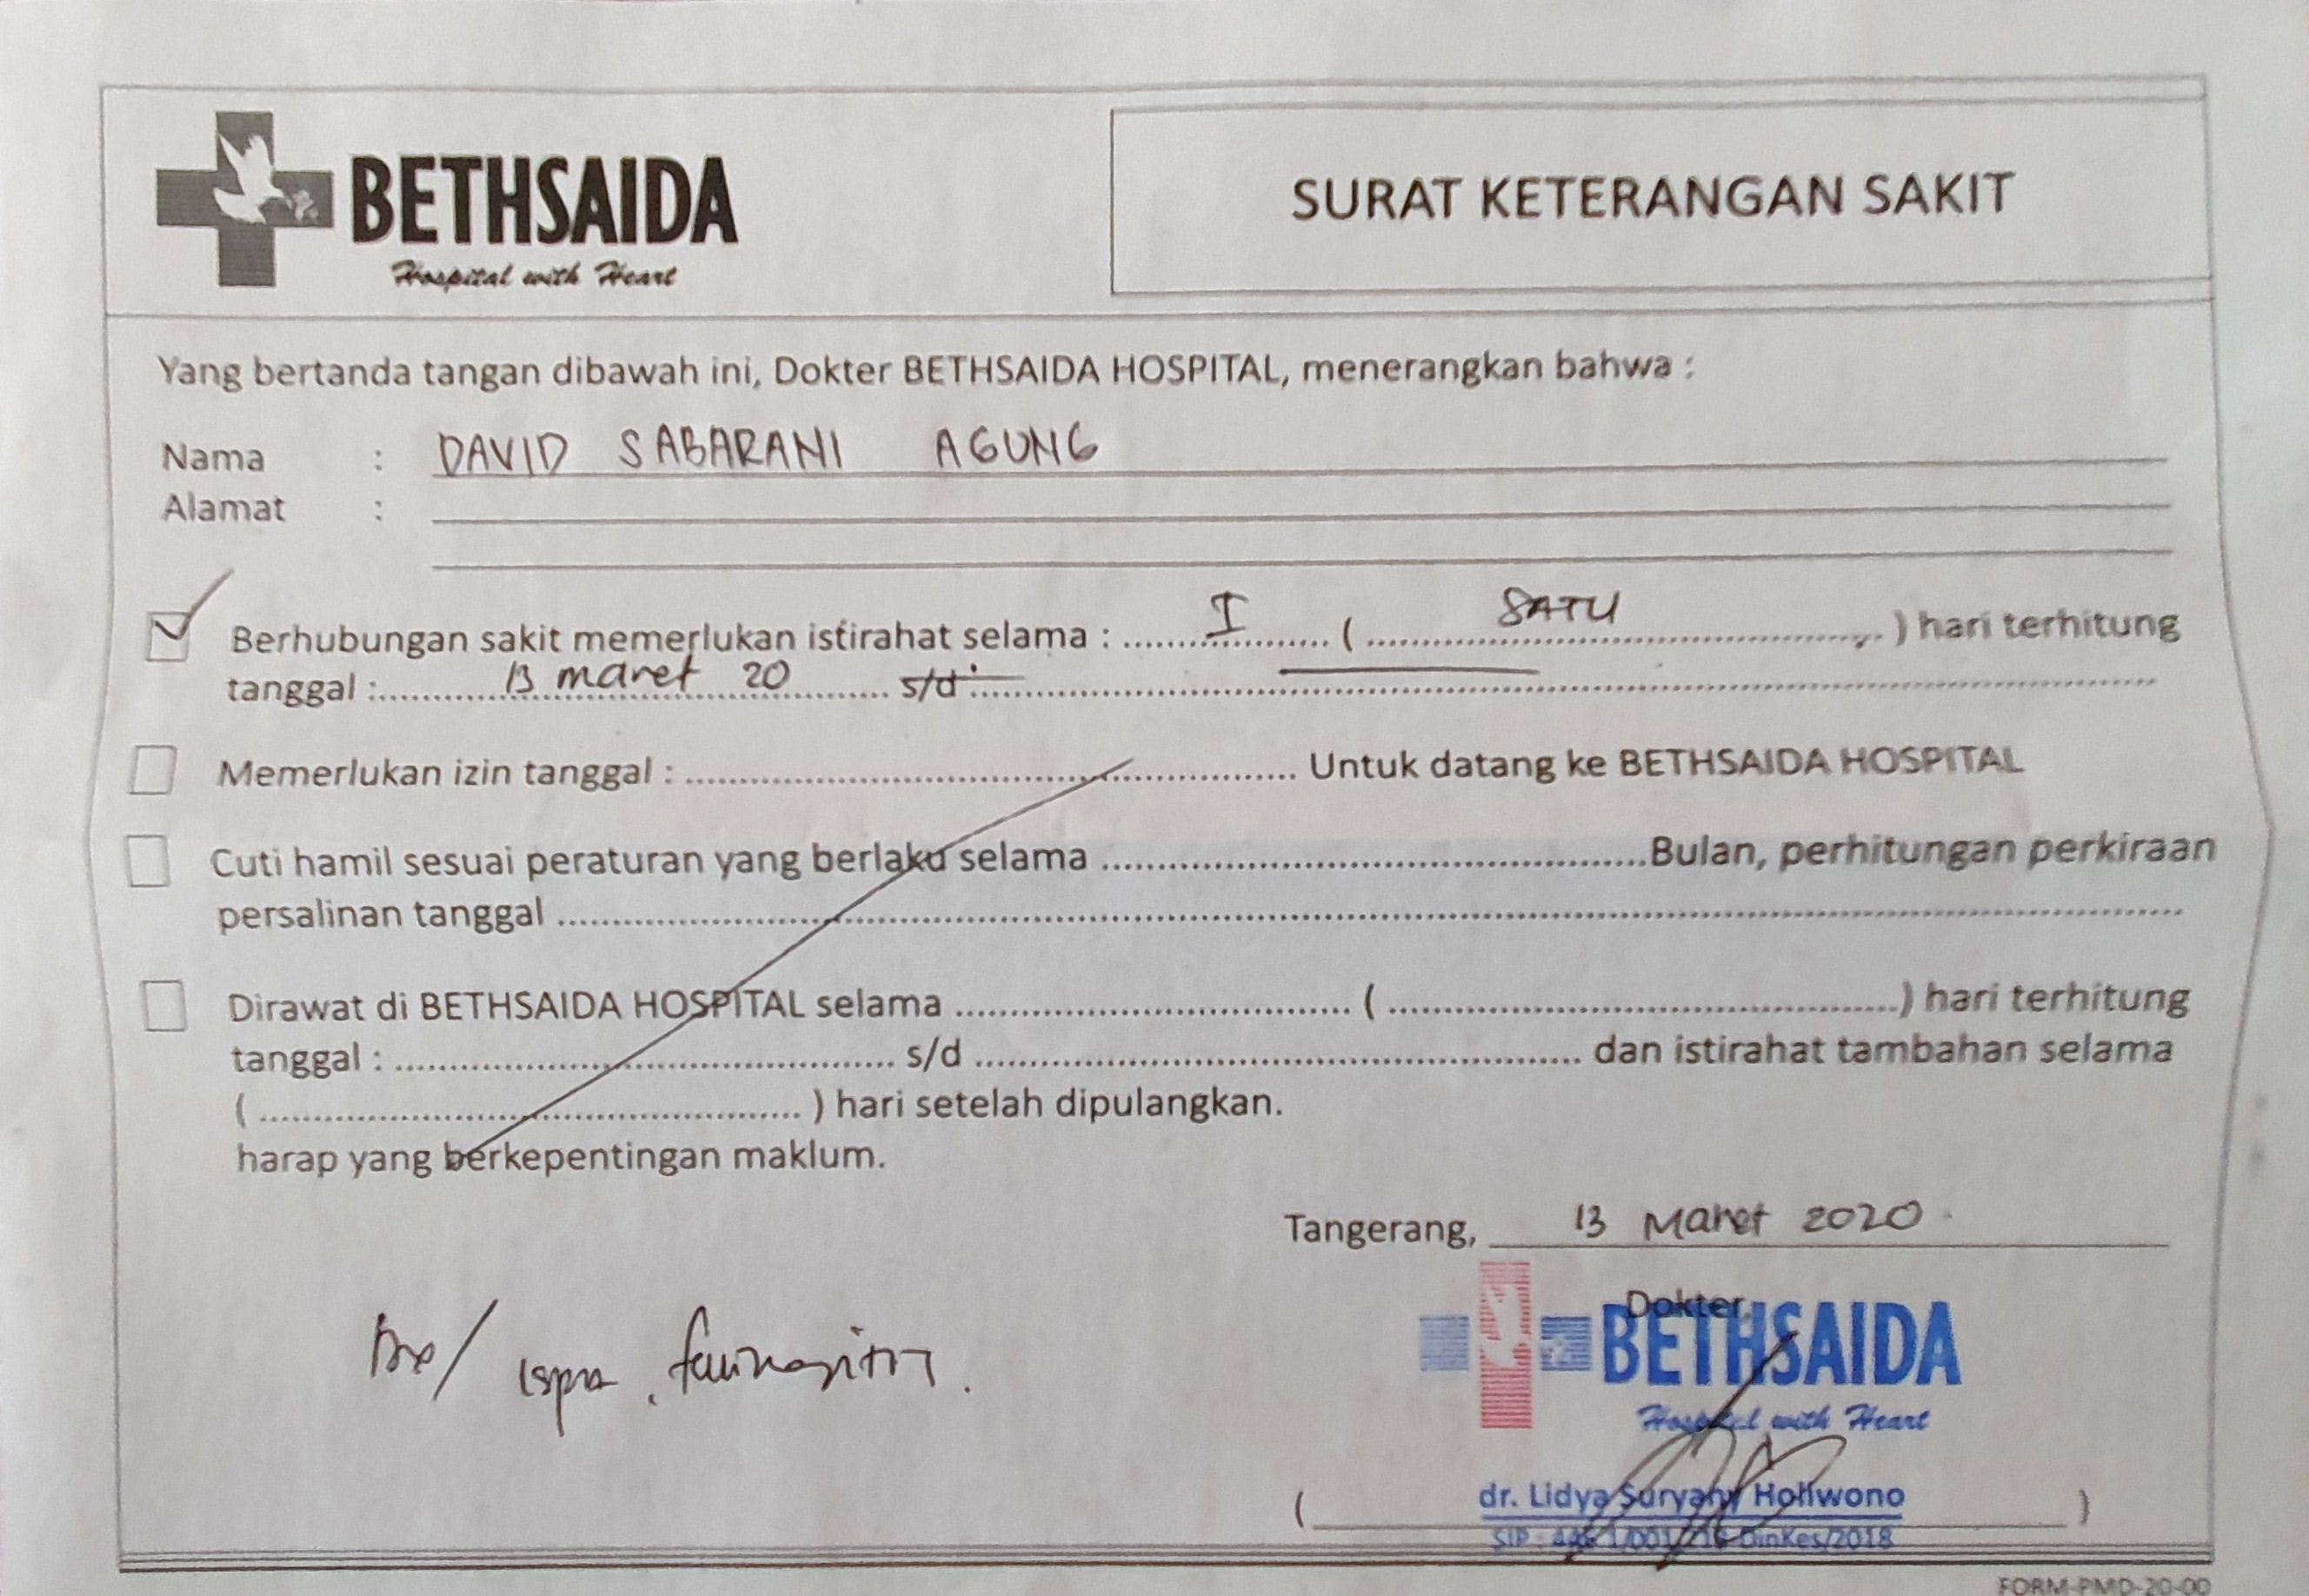 BETHSAIDA
Hospital with Heart
SURAT KETERANGAN SAKIT
Yang bertanda tangan dibawah ini, Dokter BETHSAIDA HOSPITAL, menerangkan bahwa :
Nama : DAVID SABARANI AGUNG
Alamat :
Berhubungan sakit memerlukan istirahat selama : ........I........ ( ........SATU........ ) hari terhitung
tanggal :........13 maret 20........ s/d ........
Memerlukan izin tanggal : ........ Untuk datang ke BETHSAIDA HOSPITAL
Cuti hamil sesuai peraturan yang berlaku selama ........Bulan, perhitungan perkiraan
persalinan tanggal ........
Dirawat di BETHSAIDA HOSPITAL selama ........ ( ........) hari terhitung
tanggal : ........ s/d ........ dan istirahat tambahan selama
( ........ ) hari setelah dipulangkan.
harap yang berkepentingan maklum.
Tangerang, 13 Maret 2020.
Dokter,
BETHSAIDA
Hospital with Heart
Ispa, faringitis.
( dr. Lidya Suryany Holiwono )
FORM-PMD-20-00